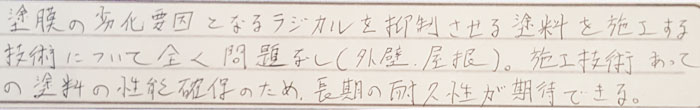 塗膜の劣化要因となるラジカルを抑制させる塗料を施工する
技術について全く問題なし(外壁.屋根)。施工技術あって
の塗料の性能確保のため、長期の耐久性が期待できる。